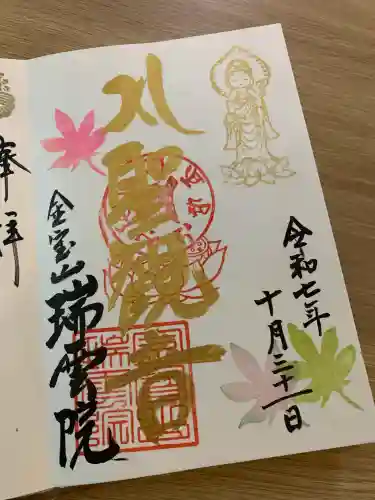 令和七年
十月三十一日
聖観音
金宝山
瑞雲院
奉拝